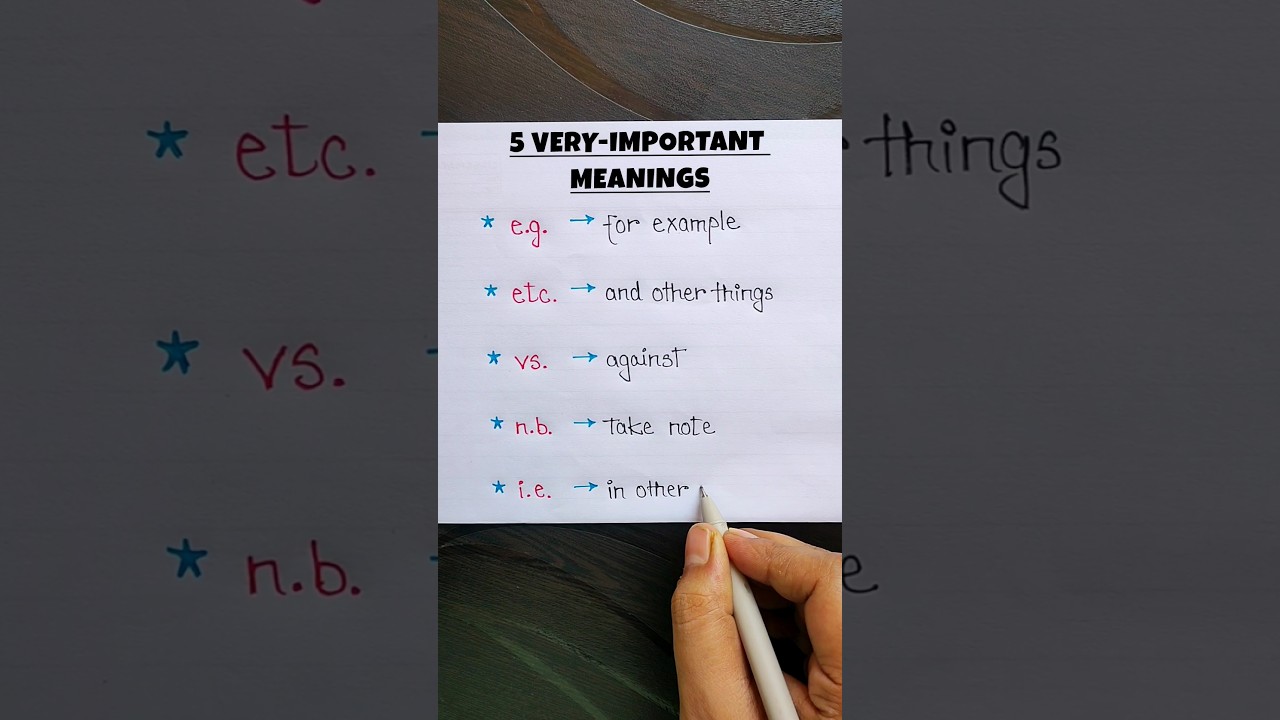 5 VERY-IMPORTANT
MEANINGS
* e.g. → for example
* etc. → and other things
* vs. → against
* n.b. → take note
* i.e. → in other